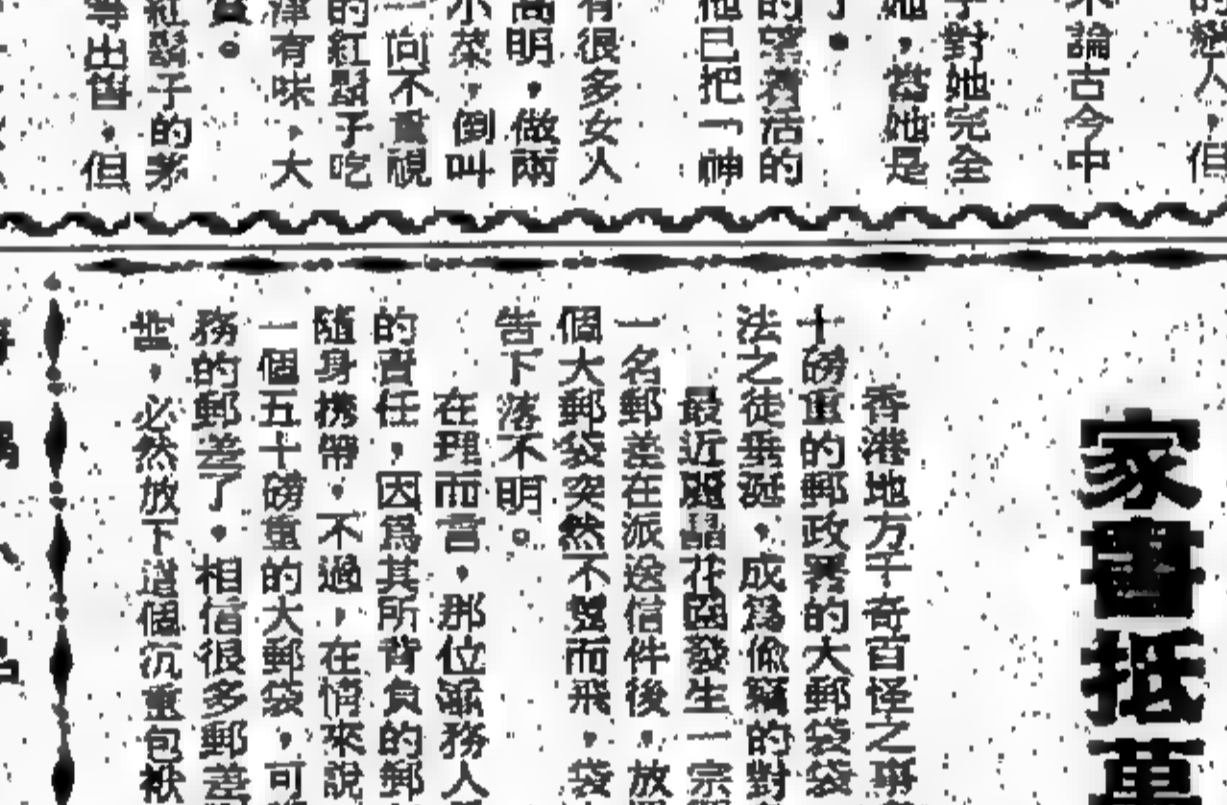 但
不論古今中
子對她完全
她，當她是
了。
的望着活的
他已把「神
有很多女人
高明，做兩
小菜，倒叫
一向不重視
的紅鬍子吃
津有味，大
紅鬍子的茅
等出售，但
家書抵萬
香港地方千奇百怪之事
十磅重的郵政署的大郵袋袋
法之徒垂涎，成爲偷竊的對
最近麗晶花園發生一宗
一名郵差在派送信件後，放
個大郵袋突然不翼而飛，袋
告下落不明。
在理而言，那位郵務人
的責任，因爲其所背負的郵
隨身携帶。不過，在情來說
一個五十磅重的大郵袋，可
務的郵差了。相信很多郵差
必然放下這個沉重包袱